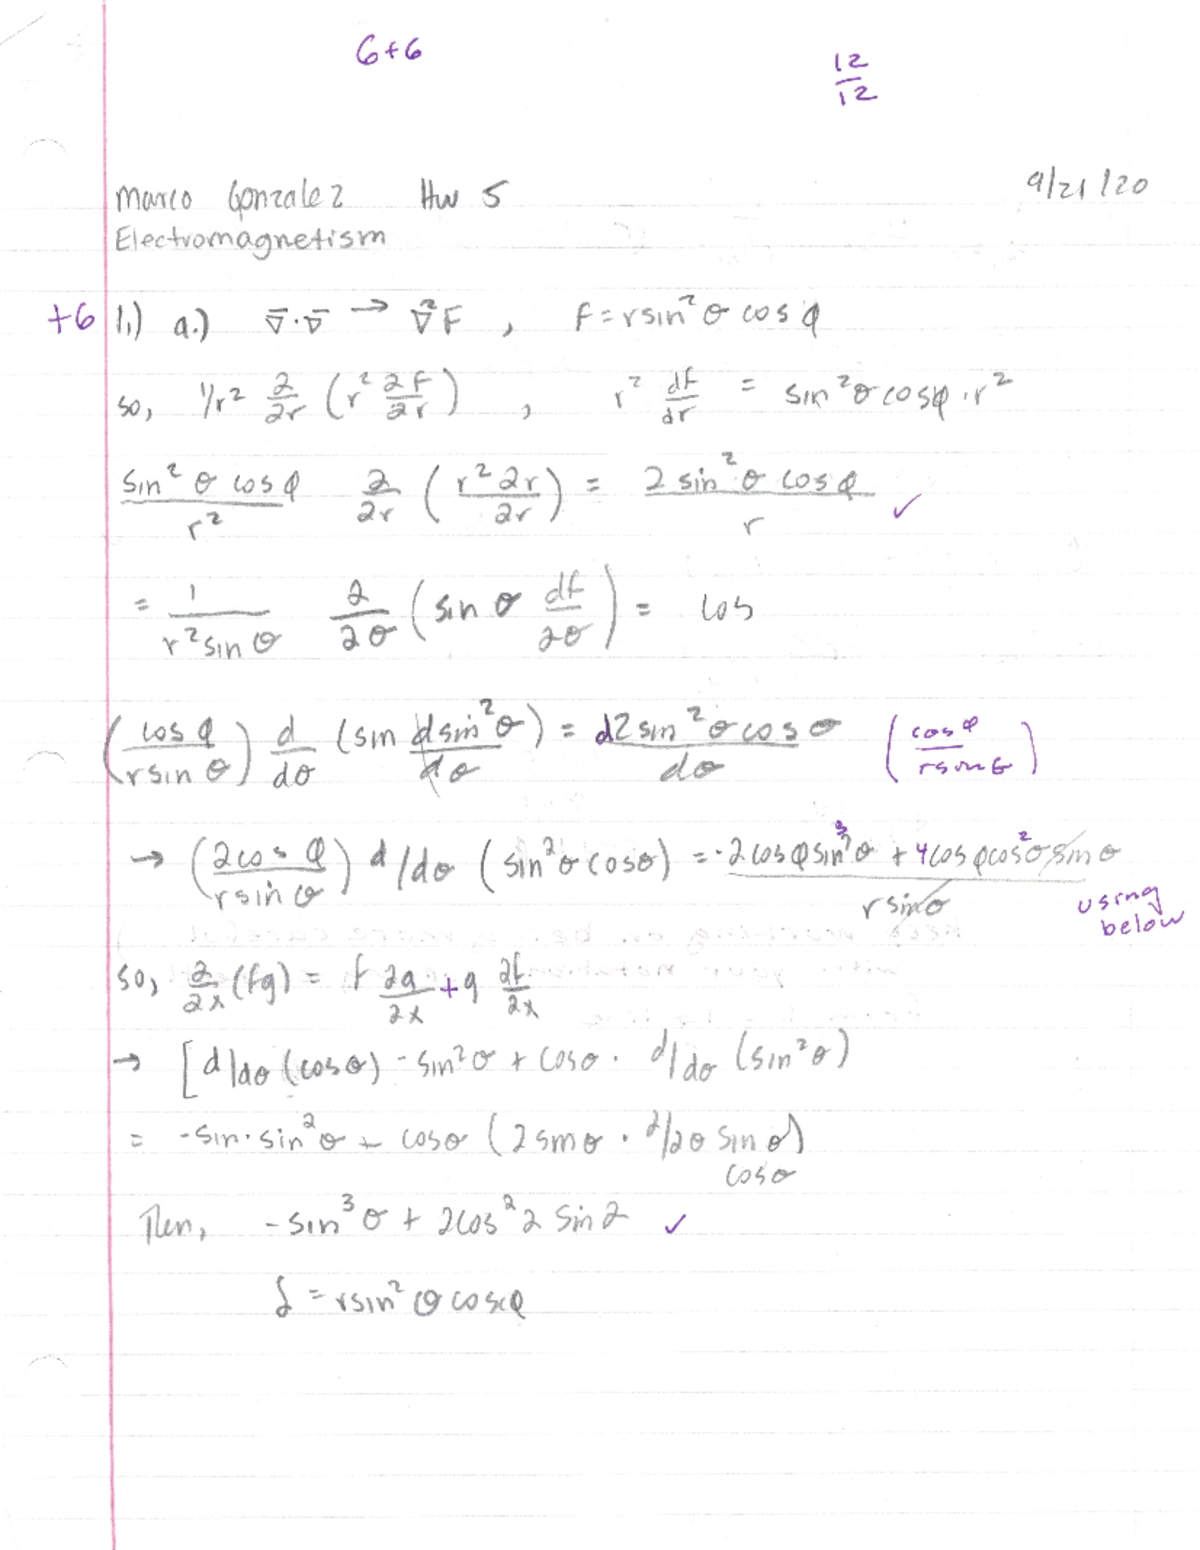 6+6
12/12
Marco Gonzalez HW 5
9/21/20
Electromagnetism
+6 1.) a.) ∇̄·∇̄ → ∇̄²F , F = rsin²θ cosφ
so, 1/r² ∂/∂r (r² ∂f/∂r) , r² df/dr = sin²θ cosφ · r²
sin²θ cosφ / r² ∂/∂r (r²∂r/∂r) = 2 sin²θ cosφ / r ✓
= 1/(r² sin θ) ∂/∂θ (sin θ df/∂θ) = cos
(cosφ / rsin θ) d/dθ (sin dsin²θ/dθ) = d2sin²θcosθ/dθ (cosφ/rsinθ)
→ (2cosφ / rsinθ) d/dθ (sin²θ cosθ) = -2cosφsin³θ + 4cosφcos²θsinθ / rsinθ
using
below
so, ∂/∂x (fg) = f ∂g/∂x + g ∂f/∂x
→ [d/dθ (cosθ) - sin²θ + cosθ · d/dθ (sin²θ)
= -sin·sin²θ + cosθ (2sinθ · ∂/∂θ sinθ)
cosθ
Then, -sin³θ + 2cos²2 sin2 ✓
f = rsin²θcosφ